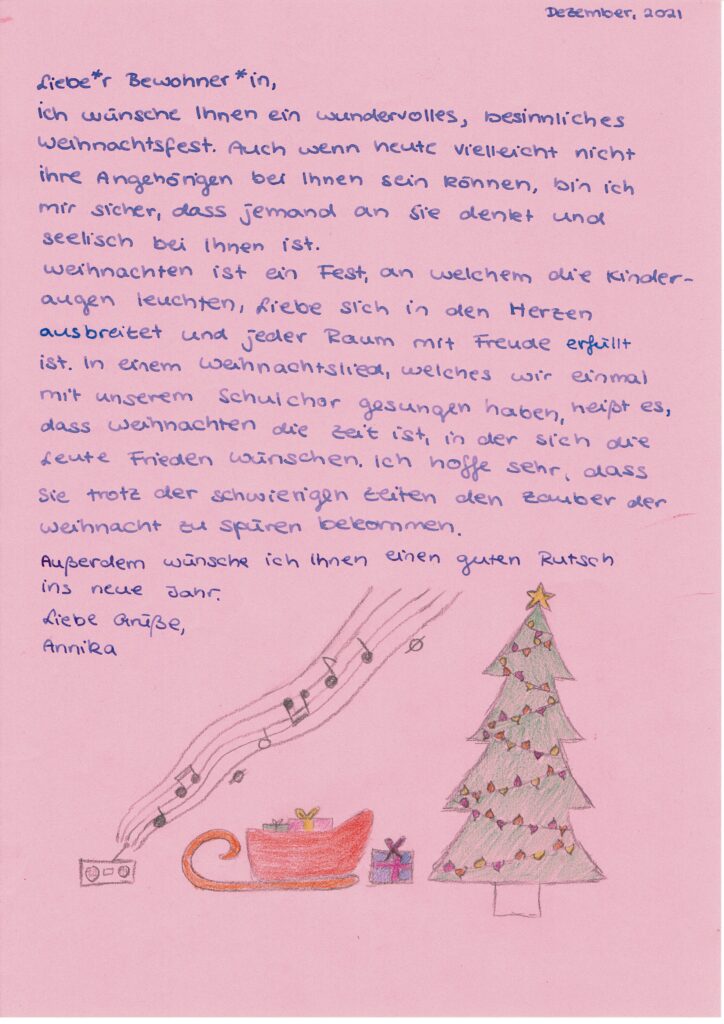 Dezember, 2021
Liebe*r Bewohner*in,
ich wünsche Ihnen ein wundervolles, besinnliches
Weihnachtsfest. Auch wenn heute vielleicht nicht
ihre Angehörigen bei Ihnen sein können, bin ich
mir sicher, dass jemand an Sie denkt und
seelisch bei Ihnen ist.
Weihnachten ist ein Fest, an welchem die Kinder-
augen leuchten, Liebe sich in den Herzen
ausbreitet und jeder Raum mit Freude erfüllt
ist. In einem Weihnachtslied, welches wir einmal
mit unserem Schulchor gesungen haben, heißt es,
dass Weihnachten die Zeit ist, in der sich die
Leute Frieden wünschen. Ich hoffe sehr, dass
Sie trotz der schwierigen Zeiten den Zauber der
Weihnacht zu spüren bekommen.
Außerdem wünsche ich Ihnen einen guten Rutsch
ins neue Jahr.
Liebe Grüße,
Annika